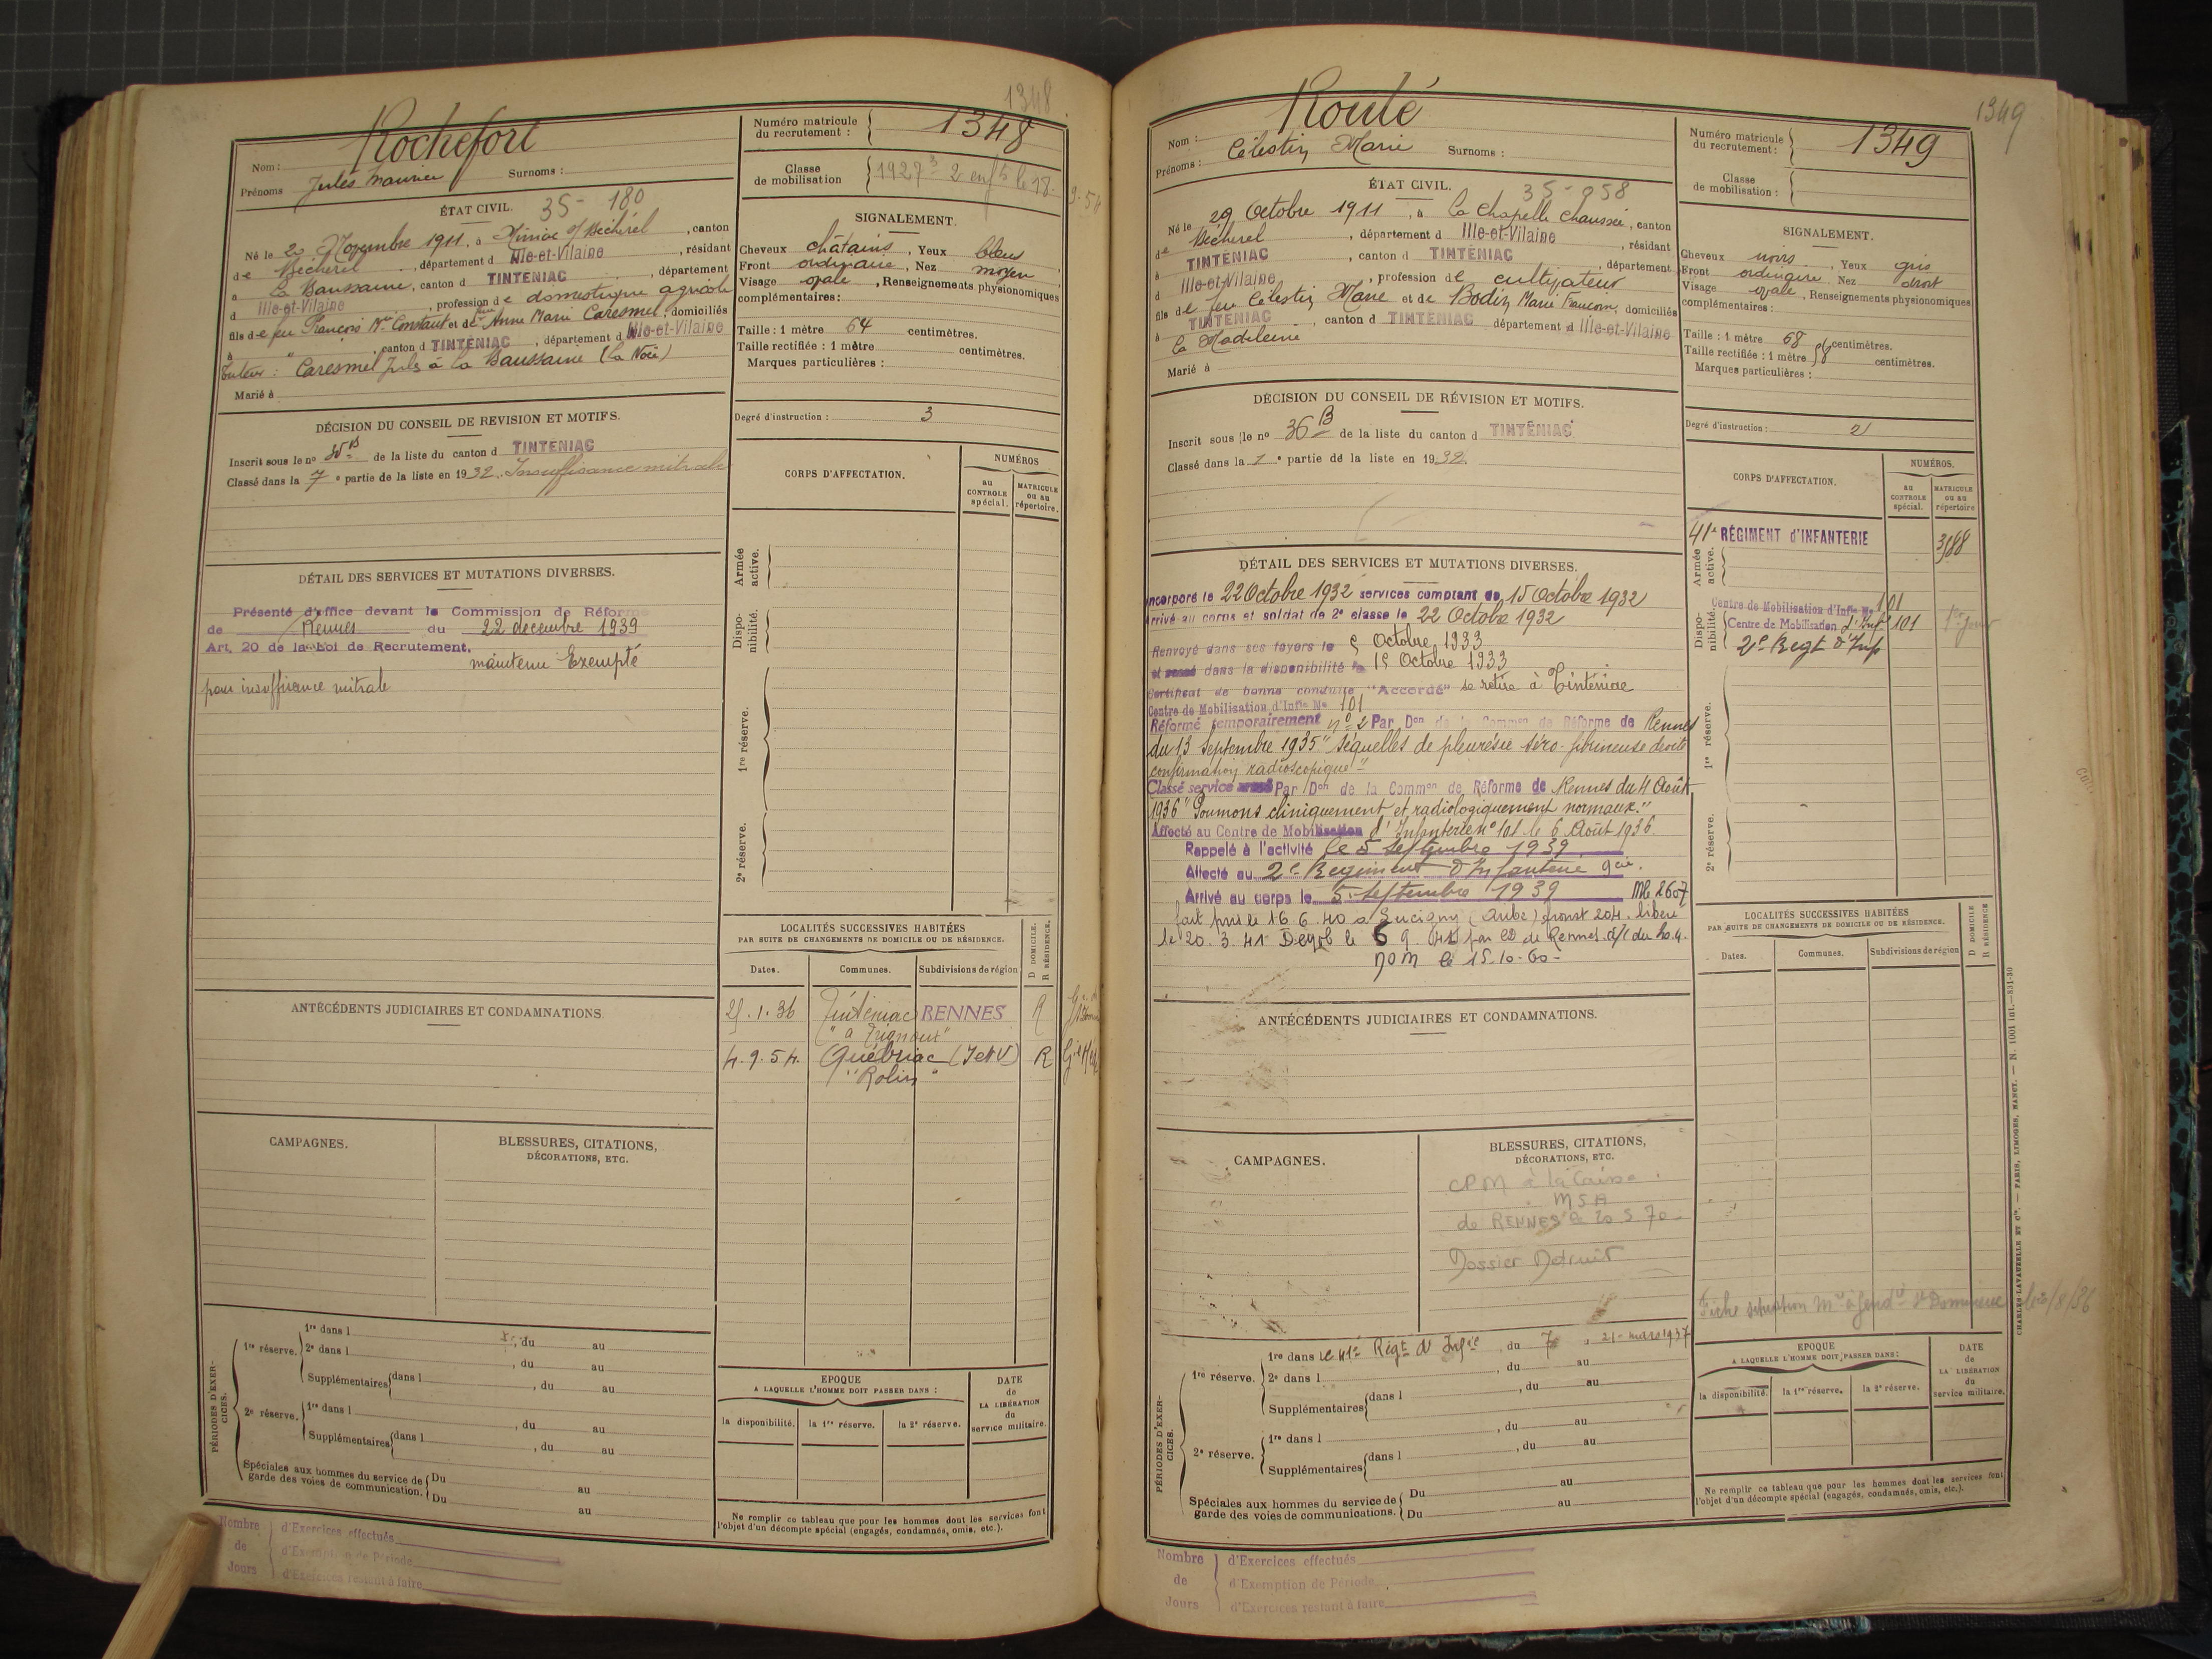 1348
Rochefort
Nom :
Prénoms Jules Maurice Surnoms :
Numéro matricule du recrutement : 1348
Classe de mobilisation 1927
ÉTAT CIVIL.
35- 180
Né le 20 Novembre 1911, à Miniac s/ Bécherel, canton
de Bécherel, département d Ille-et-Vilaine, résidant
à La Baussaine, canton d TINTENIAC, département
d Ille-et-Vilaine, profession de domestique agricole
fils de feu François Constant et de Anne Marie Caresmel, domiciliés
à " canton d TINTENIAC, département d Ille-et-Vilaine
tuteur : Caresmel Jules à La Baussaine (La Noë)
Marié à
SIGNALEMENT.
Cheveux châtains, Yeux bleus
Front ordinaire, Nez moyen
Visage ovale, Renseignements physionomiques
complémentaires :
Taille : 1 mètre 64 centimètres.
Taille rectifiée : 1 mètre centimètres.
Marques particulières :
Degré d'instruction : 3
DÉCISION DU CONSEIL DE REVISION ET MOTIFS.
Inscrit sous le no de la liste du canton d TINTENIAC
Classé dans la 7e partie de la liste en 1932. Insuffisance mitrale
DÉTAIL DES SERVICES ET MUTATIONS DIVERSES.
Présenté d'office devant la Commission de Réforme
de Rennes du 22 decembre 1939
Art. 20 de la Loi de Recrutement,
maintenu Exempté
pour insuffisance mitrale
CORPS D'AFFECTATION.
NUMÉROS
au CONTROLE spécial.
MATRICULE ou au répertoire.
Armée active.
Disponibilité.
1re réserve.
2e réserve.
ANTÉCÉDENTS JUDICIAIRES ET CONDAMNATIONS.
LOCALITÉS SUCCESSIVES HABITÉES
PAR SUITE DE CHANGEMENTS DE DOMICILE OU DE RÉSIDENCE.
D DOMICILE.
R RÉSIDENCE.
Dates. Communes. Subdivisions de région
25.1.36 Tinténiac RENNES R
4.9.54. Québriac (I et V) R
"Rolin"
CAMPAGNES.
BLESSURES, CITATIONS,
DÉCORATIONS, ETC.
PÉRIODES D'EXERCICES.
1re réserve.
1re dans l , du au
2e dans l , du au
Supplémentaires dans l , du au
2e réserve.
1re dans l , du au
Supplémentaires dans l , du au
Spéciales aux hommes du service de garde des voies de communication.
Du au
Du au
EPOQUE
A LAQUELLE L'HOMME DOIT PASSER DANS :
la disponibilité. la 1re réserve. la 2e réserve.
DATE de LA LIBÉRATION du service militaire.
Ne remplir ce tableau que pour les hommes dont les services font
l'objet d'un décompte spécial (engagés, condamnés, omis, etc.).
Nombre de Jours
d'Exercices effectués
d'Exemption de Période
d'Exercices restant à faire
1349
Roulé
Nom :
Prénoms : Célestin Marie Surnoms :
Numéro matricule du recrutement : 1349
Classe de mobilisation :
ÉTAT CIVIL.
35-058
Né le 29 Octobre 1911, à La Chapelle Chaussée, canton
de Bécherel, département d Ille-et-Vilaine, résidant
à TINTÉNIAC, canton d TINTÉNIAC, département
d Ille-et-Vilaine, profession de cultivateur
fils de feu Célestin Marie et de Bodin Marie Françoise, domiciliés
à TINTÉNIAC, canton d TINTÉNIAC département d Ille-et-Vilaine
La Madeleine
Marié à
SIGNALEMENT.
Cheveux noirs, Yeux gris
Front ordinaire Nez droit
Visage ovale, Renseignements physionomiques
complémentaires :
Taille : 1 mètre 68 centimètres.
Taille rectifiée : 1 mètre centimètres.
Marques particulières :
Degré d'instruction : 2
DÉCISION DU CONSEIL DE RÉVISION ET MOTIFS.
Inscrit sous le no 36 B de la liste du canton d TINTÉNIAC
Classé dans la 1e partie de la liste en 1932.
CORPS D'AFFECTATION.
NUMÉROS.
au CONTROLE spécial.
MATRICULE ou au répertoire
41e RÉGIMENT d'INFANTERIE 3188
Armée active.
Centre de Mobilisation d'Infie No 101
Centre de Mobilisation d'Inf 101
2e Regt d'Inf
Disponibilité.
1re réserve.
2e réserve.
DÉTAIL DES SERVICES ET MUTATIONS DIVERSES.
Incorporé le 22 Octobre 1932 services comptant de 15 Octobre 1932
Arrivé au corps et soldat de 2e classe le 22 Octobre 1932
Renvoyé dans ses foyers le 5 Octobre 1933
et passé dans la disponibilité le 15 Octobre 1933
Certificat de bonne conduite "Accordé" se retire à Tinténiac
Centre de Mobilisation d'Infie No 101
Réformé temporairement no 2 Par Don de la Common de Réforme de Rennes
du 13 Septembre 1935 "Séquelles de pleurésie séro-fibrineuse droite
confirmation radioscopique"
Classé service armé Par Don de la Common de Réforme de Rennes du 4 Août
1936 "Poumons cliniquement et radiologiquement normaux."
Affecté au Centre de Mobilisation d'Infanterie no 101 le 6 Août 1936.
Rappelé à l'activité le 5 Septembre 1939
Affecté au 2e Regiment d'Infanterie 9 cie.
Arrivé au corps le 5 Septembre 1939 Mle 2607
fait pris le 16.6.40 à Lucigny (Aube) front 204. libéré
le 20.3.41
DOM le 15-10-60-
ANTÉCÉDENTS JUDICIAIRES ET CONDAMNATIONS.
LOCALITÉS SUCCESSIVES HABITÉES
PAR SUITE DE CHANGEMENTS DE DOMICILE OU DE RÉSIDENCE.
D DOMICILE
R RÉSIDENCE
Dates. Communes. Subdivisions de région
CAMPAGNES.
BLESSURES, CITATIONS,
DÉCORATIONS, ETC.
CPM à la Caisse
MSA
de RENNES le 20 5 70
Dossier Détruit
PÉRIODES D'EXERCICES.
1re réserve.
1re dans le 41e Régt d'Infie, du 7 au 21 mars 1937
2e dans l , du au
Supplémentaires dans l , du au
2e réserve.
1re dans l , du au
Supplémentaires dans l , du au
Spéciales aux hommes du service de garde des voies de communications.
Du au
Du au
EPOQUE
A LAQUELLE L'HOMME DOIT PASSER DANS :
la disponibilité. la 1re réserve. la 2e réserve.
DATE de LA LIBÉRATION du service militaire.
Ne remplir ce tableau que pour les hommes dont les services font
l'objet d'un décompte spécial (engagés, condamnés, omis, etc.).
CHARLES-LAVAUZELLE ET Cie. — PARIS, LIMOGES, NANCY. — N. 1001 int.—831-30
Nombre de Jours
d'Exercices effectués
d'Exemption de Période
d'Exercices restant à faire